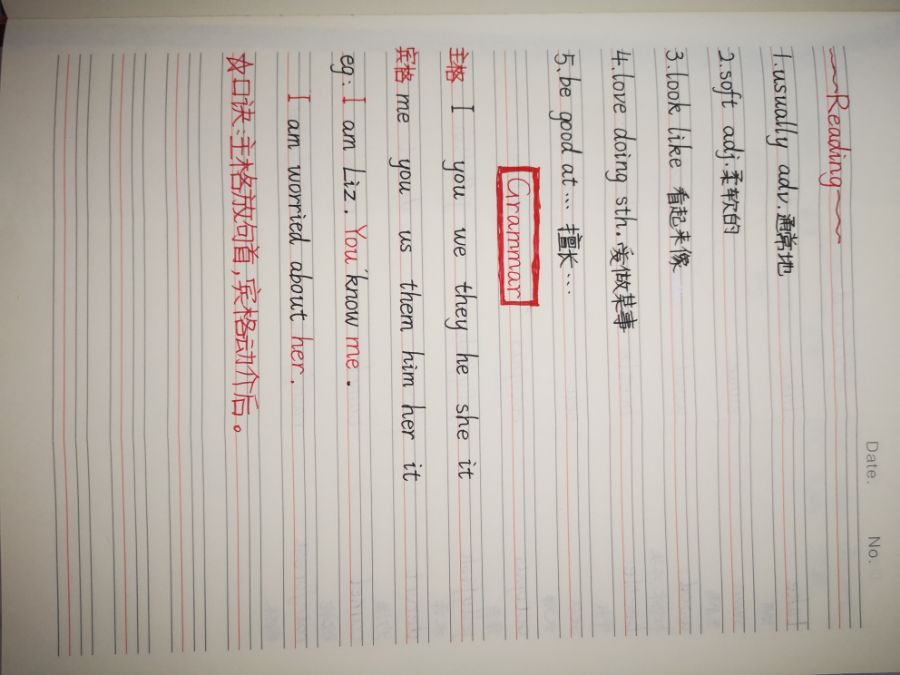 Date. No.
~~~Reading~~~
1.usually adv.通常地
2.soft adj.柔软的
3.look like 看起来像
4.love doing sth.爱做某事
5.be good at... 擅长...
Grammar
主格 I you we they he she it
宾格 me you us them him her it
eg: I am Liz. You know me.
I am worried about her.
☆口诀:主格放句首,宾格动介后。